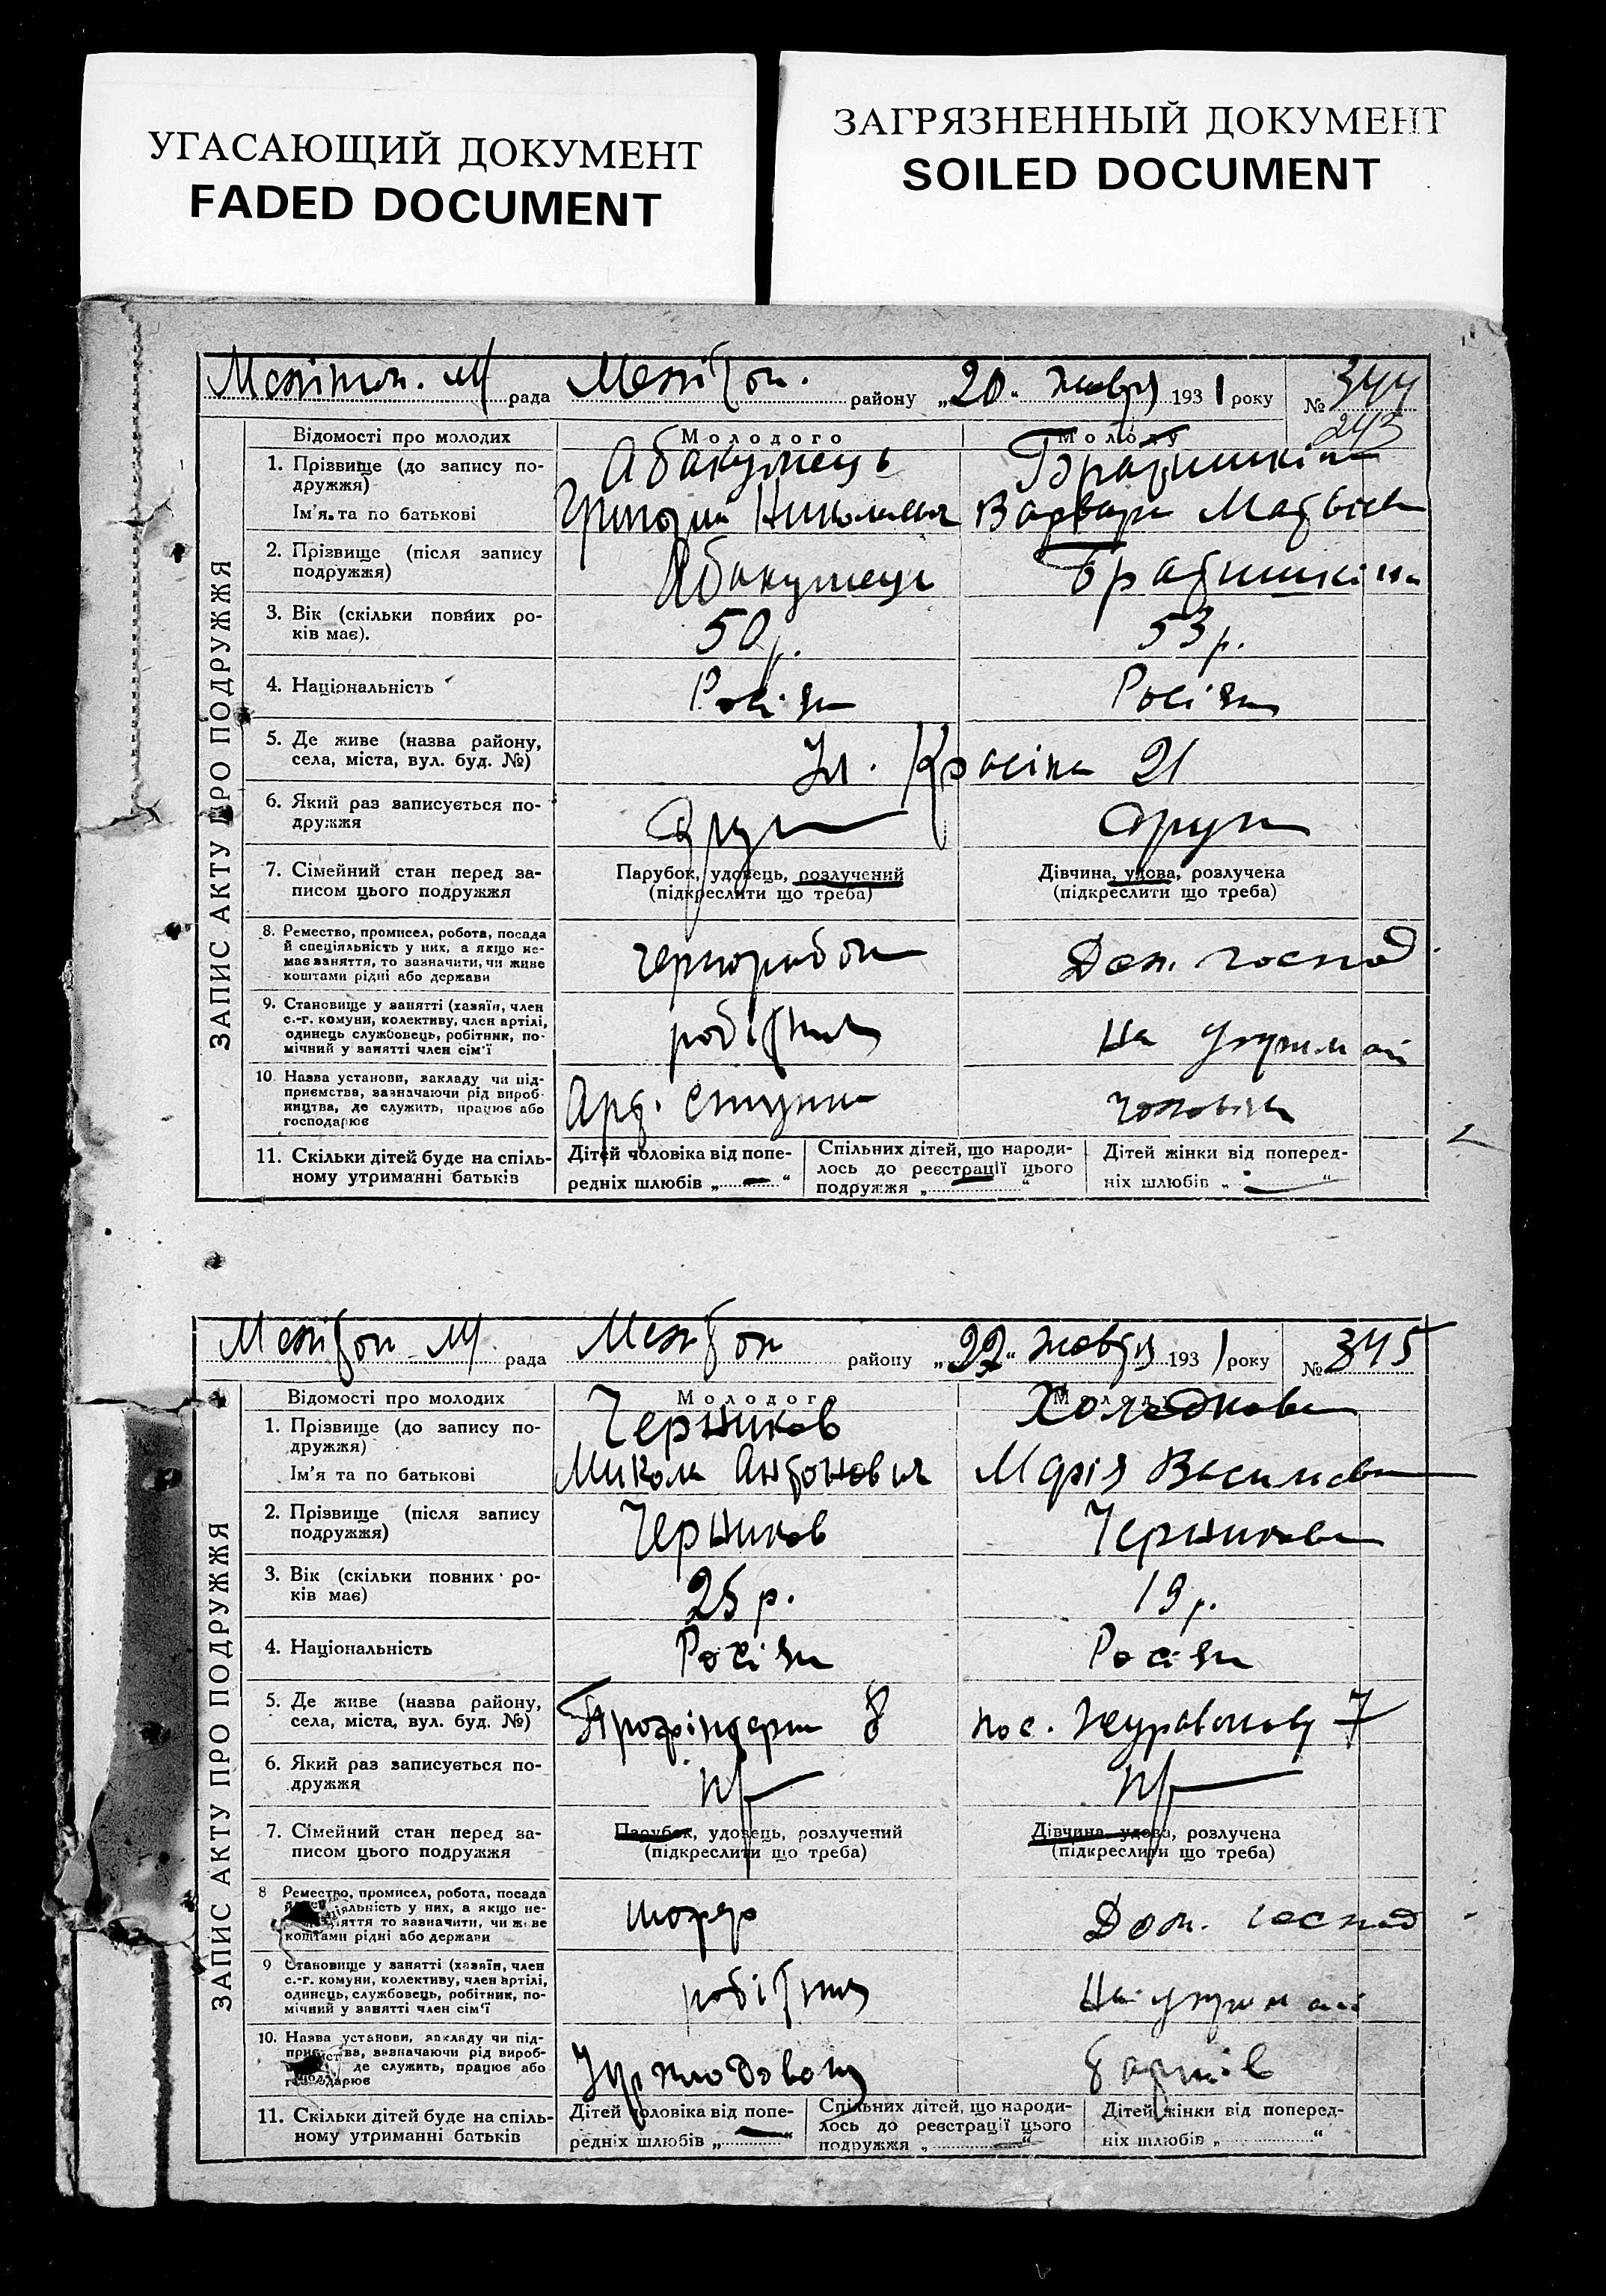 УГАСАЮЩИЙ ДОКУМЕНТ
FADED DOCUMENT
ЗАГРЯЗНЕННЫЙ ДОКУМЕНТ
SOILED DOCUMENT
ЗАПИС АКТУ ПРО ПОДРУЖЖЯ
Мелітоп. М рада Мелітоп. району „20" жовтня 1931 року № 344
243
Відомості про молодих Молодого Молоду
1. Прізвище (до запису по-
дружжя)
Абакумець
Ім'я та по батькові Николаевич Варвара Матвієв
2. Прізвище (після запису
подружжя)
Абакумець
3. Вік (скільки повних ро-
ків має).
50 р. 53 р.
4. Національність Росіян Росіян
5. Де живе (назва району,
села, міста, вул. буд. №)
Ул. Красіна 21
6. Який раз записується по-
дружжя
Други Други
7. Сімейний стан перед за-
писом цього подружжя
Парубок, удовець, розлучений
(підкреслити що треба)
Дівчина, удова, розлучека
(підкреслити що треба)
8. Ремество, промисел, робота, посада
й спеціяльність у них, а якщо не-
має заняття, то зазначити, чи живе
коштами рідні або держави
чернороб Дом. господ
9. Становище у занятті (хазяїн, член
с.-г. комуни, колективу, член артілі,
одинець службовець, робітник, по-
мічний у занятті член сім'ї
робітник На утриман
10. Назва установи, закладу чи під-
приємства, зазначаючи рід вироб-
ництва, де служить, працює або
господарює
чоловіка
11. Скільки дітей буде на спіль-
ному утриманні батьків
Дітей чоловіка від попе-
редніх шлюбів „ — “
Спільних дітей, що народи-
лось до реєстрації цього
подружжя „ — “
Дітей жінки від поперед-
ніх шлюбів „ — “
ЗАПИС АКТУ ПРО ПОДРУЖЖЯ
Мелітоп М. рада Мелітоп району „22" жовтня 1931 року № 345
Відомості про молодих Молодого Молоду
1. Прізвище (до запису по-
дружжя)
Черников Холодкова
Ім'я та по батькові Микола Антонович Марія Василівна
2. Прізвище (після запису
подружжя)
Черников Черникова
3. Вік (скільки повних ро-
ків має)
25 р. 19 р.
4. Національність Росіян Росіян
5. Де живе (назва району,
села, міста, вул. буд. №)
Профінтерн 8 пос. 7
6. Який раз записується по-
дружжя
7. Сімейний стан перед за-
писом цього подружжя
Парубок, удовець, розлучений
(підкреслити що треба)
Дівчина, удова, розлучена
(підкреслити що треба)
8 Ремество, промисел, робота, посада
й спеціяльність у них, а якщо не-
має заняття то зазначити, чи живе
коштами рідні або держави
шофер Дом. господ
9 Становище у занятті (хазяїн, член
с.-г. комуни, колективу, член артілі,
одинець, службовець, робітник, по-
мічний у занятті член сім'ї
робітник На утриман
10. Назва установи, закладу чи під-
приємства, зазначаючи рід вироб-
де служить, працює або
господарює
батьків
11. Скільки дітей буде на спіль-
ному утриманні батьків
Дітей чоловіка від попе-
редніх шлюбів „ — “
Спільних дітей, що народи-
лось до реєстрації цього
подружжя „ — “
Дітей жінки від поперед-
ніх шлюбів „ “